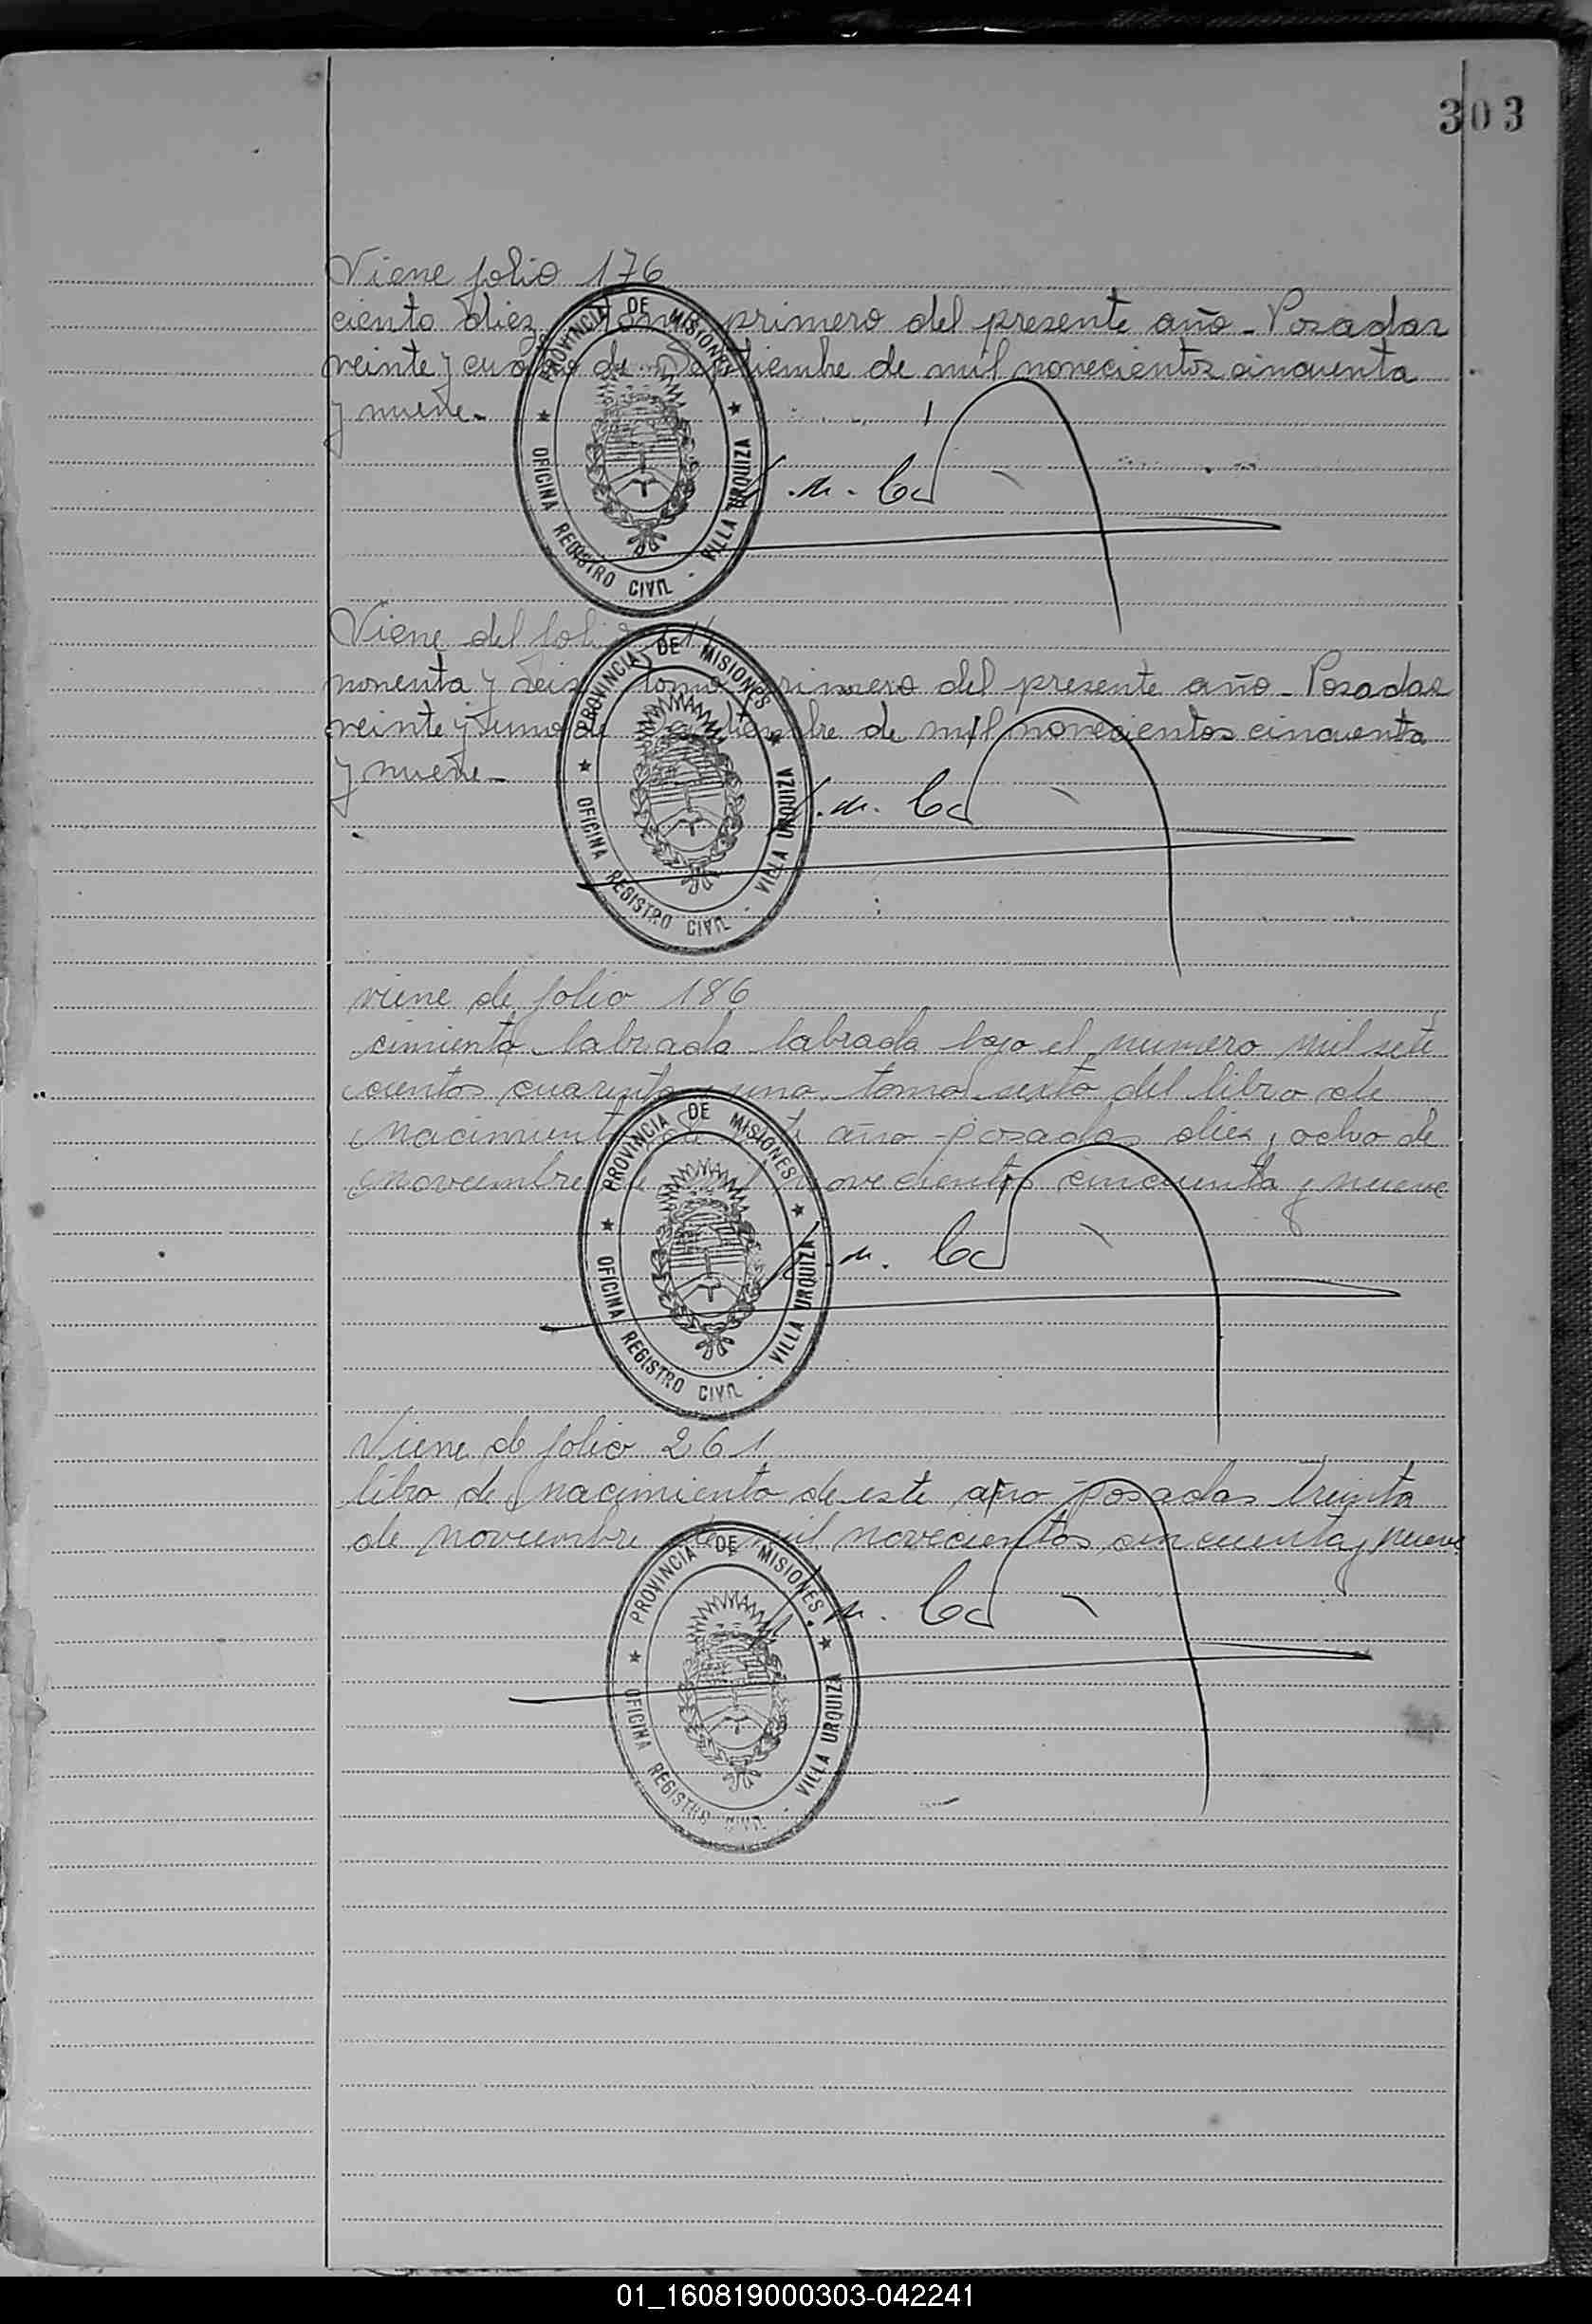 303
Viene folio 176
ciento diez, tomo primero del presente año - Posadas
veinte y cuatro de Septiembre de mil novecientos cincuenta
y nueve -
PROVINCIA DE MISIONES
OFICINA REGISTRO CIVIL - VILLA URQUIZA
Viene del folio
noventa y seis, tomo primero del presente año - Posadas
veinte y uno de Septiembre de mil novecientos cincuenta
y nueve -
PROVINCIA DE MISIONES
OFICINA REGISTRO CIVIL - VILLA URQUIZA
viene de folio 186
cimiento labrada labrada bajo el numero mil sete
cientos cuarenta y uno, tomo sexto del libro de
nacimiento de este año - posadas diez y ocho de
noviembre de mil novecientos cincuenta y nueve
PROVINCIA DE MISIONES
OFICINA REGISTRO CIVIL - VILLA URQUIZA
Viene de folio 261
libro de nacimiento de este año posadas treinta
de noviembre de mil novecientos cincuenta y nueve
PROVINCIA DE MISIONES
OFICINA REGISTRO CIVIL - VILLA URQUIZA
01_160819000303-042241